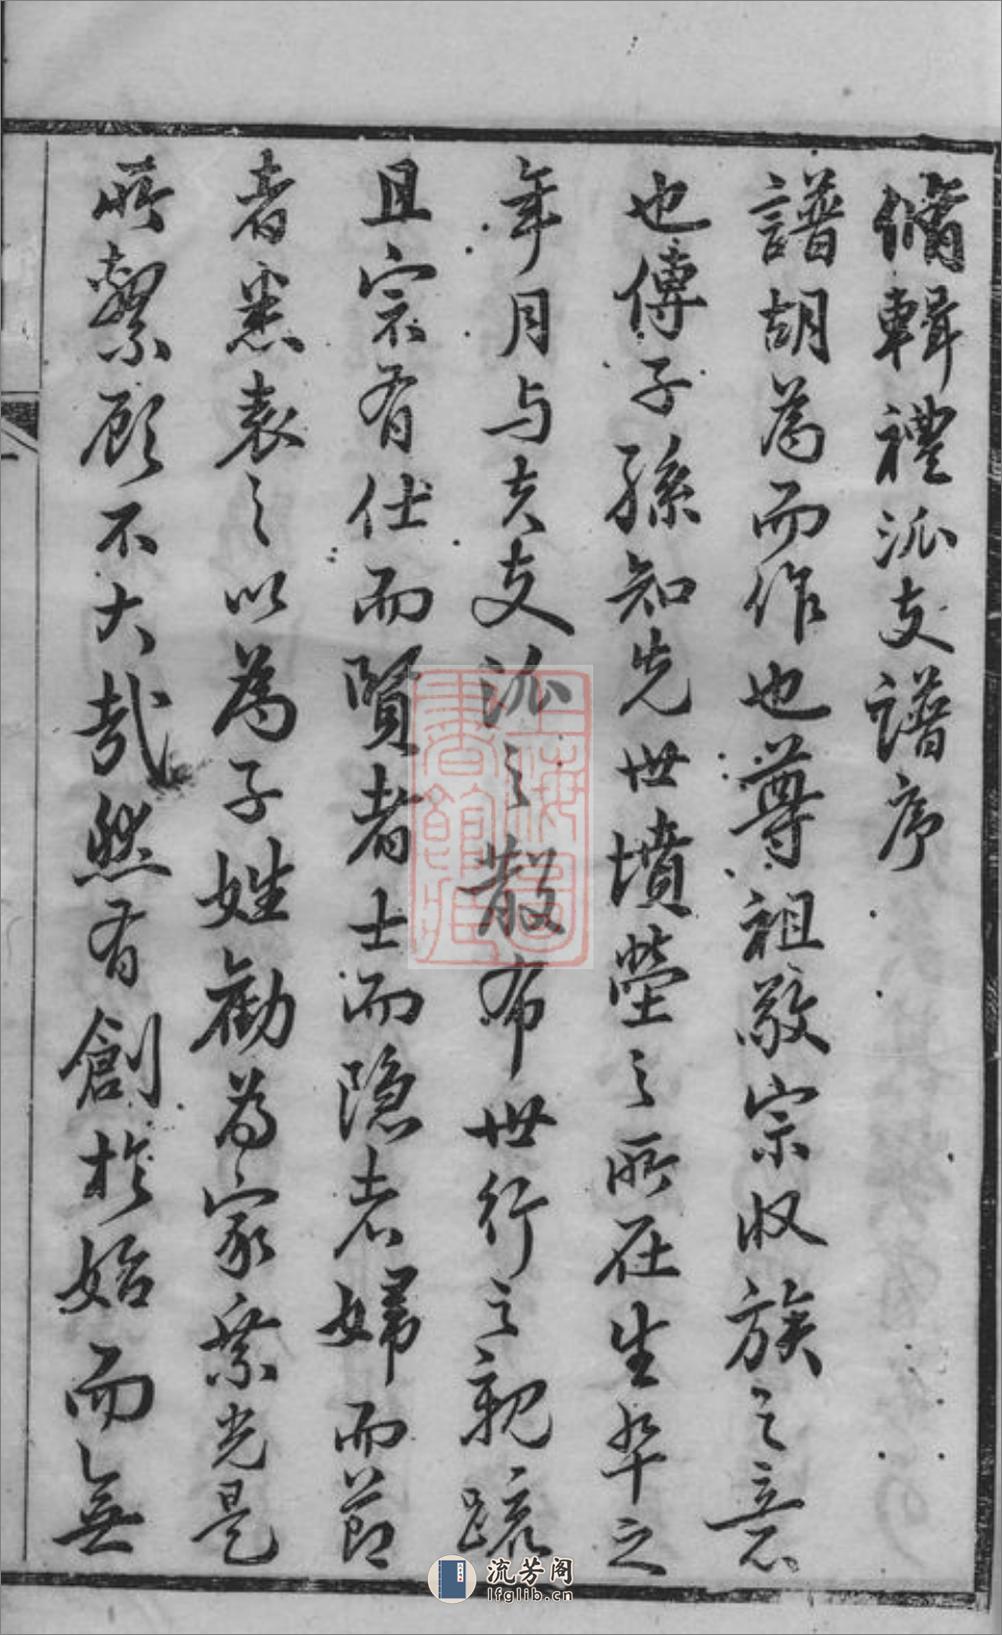 脩輯禮派支譜序
譜胡為而作也尊祖敬宗收族之意
也傳子孫知先世墳塋之所在生卒之
年月与夫支派之散布世行之親疏
且宗有仕而賢者士而隐者婦而節
者悉表之以為子姓勸為家乘光是
所繫顧不大哉然有創於始而無
上海圖書館藏
流芳阁
lfglib.cn